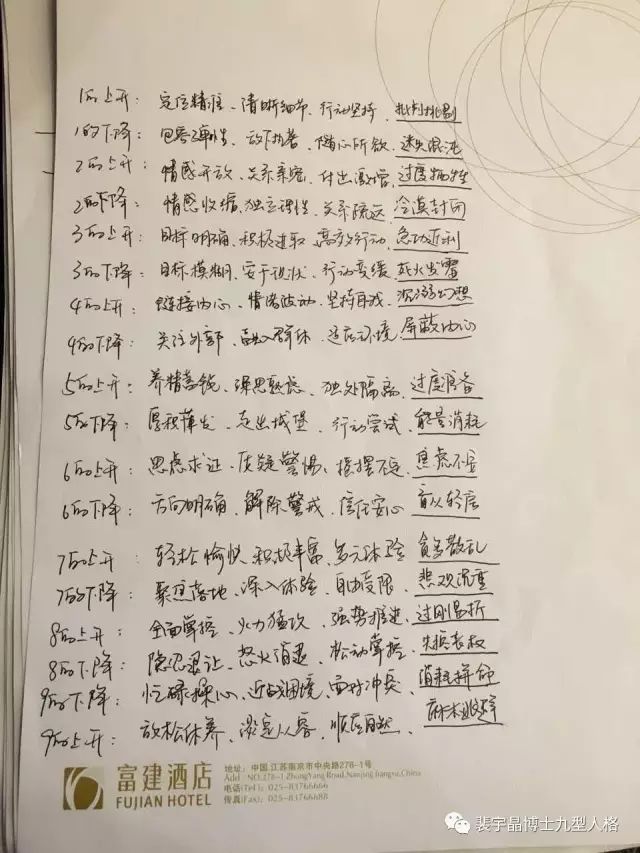 1的上升：定位精准、清晰细节、行动坚持、批判挑剔
1的下降：包容弹性、放下执着、随心所欲、迷失混沌
2的上升：情感开放、关系亲密、付出激增、过度牺牲
2的下降：情感收缩、独立理性、关系疏远、冷漠封闭
3的上升：目标明确、积极进取、高效行动、急功近利
3的下降：目标模糊、安于现状、行动变缓、死火出窍
4的上升：链接内心、情绪波动、坚持自我、沉溺幻想
4的下降：关注外部、融入群体、适应环境、屏蔽内心
5的上升：养精蓄锐、深思熟虑、独处隔离、过度准备
5的下降：厚积薄发、走出城堡、行动尝试、能量消耗
6的上升：思虑求证、质疑警惕、摇摆不定、焦虑不安
6的下降：方向明确、解除警戒、信任安心、盲从轻信
7的上升：轻松愉快、积极丰富、多元体验、贪多散乱
7的下降：聚焦落地、深入体验、自由受限、悲观沉重
8的上升：全面掌控、火力猛攻、强势推进、过刚易折
8的下降：隐忍退让、怒火消退、松动掌控、失控丧权
9的下降：忙碌操心、近战困境、面对冲突、消耗拼命
9的上升：放松休养、淡定从容、顺应自然、麻木逃避
富建酒店
FUJIAN HOTEL
地址：中国.江苏南京市中央路278-1号
Add: NO.278-1 ZhongYang Road,Nanjing Jiangsu,China
电话(Tel)：025-83766666
传真(Fax)：025-83768688
裴宇晶博士九型人格